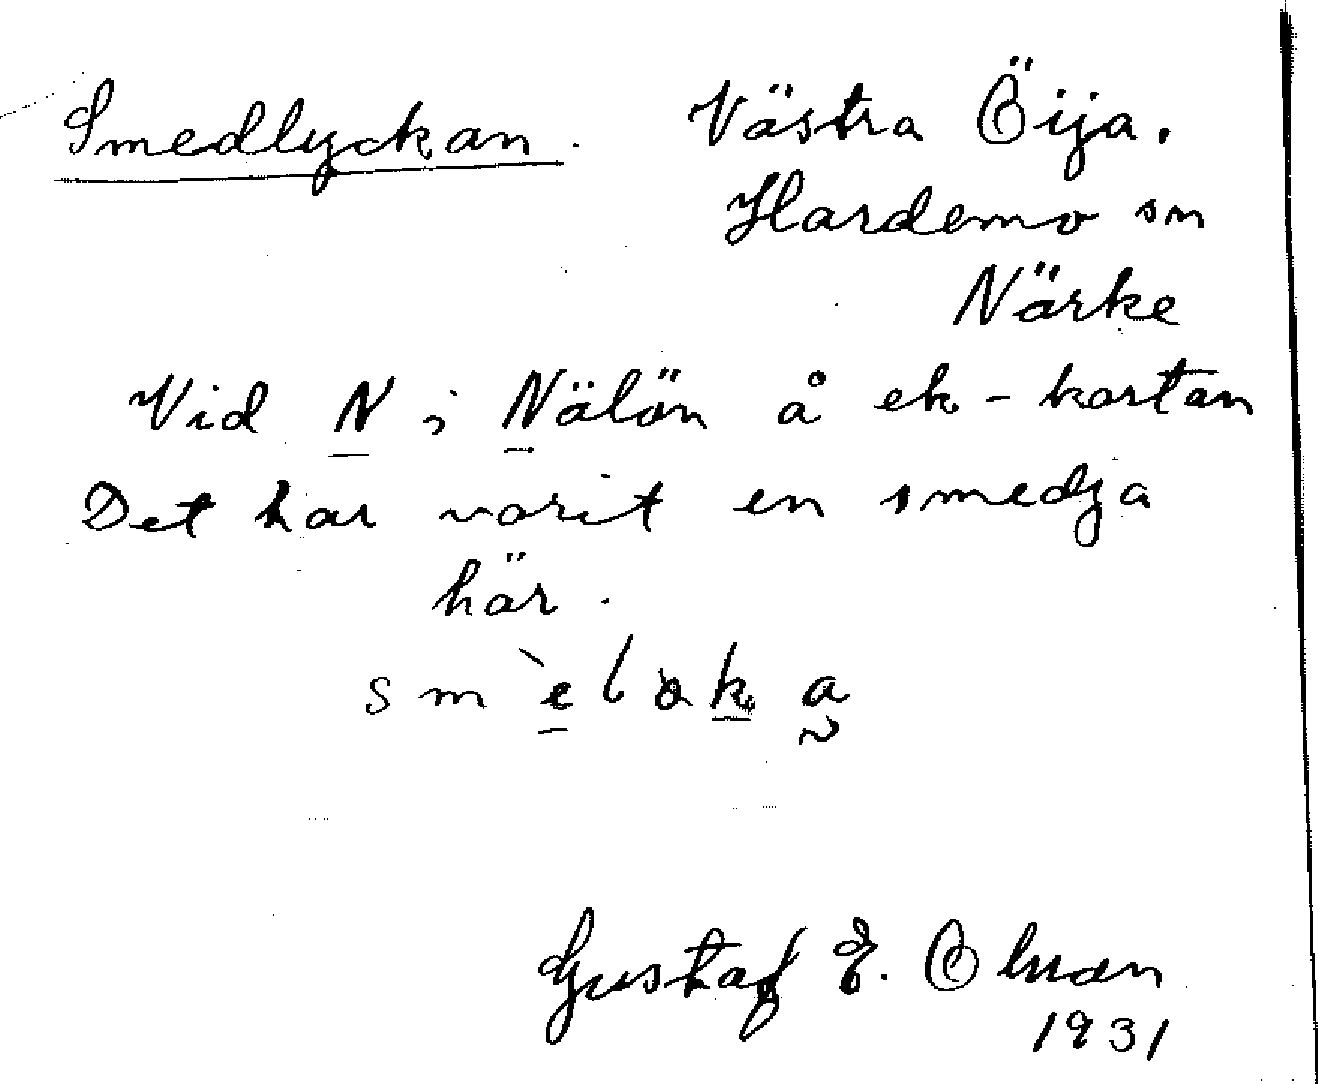 Smedlyckan. Västra Öija.
Hardemo sn
Närke
Vid N i Nälön å ek-kartan
Det har varit en smedja
här.
smèlɔka
Gustaf E. Ohman
1931